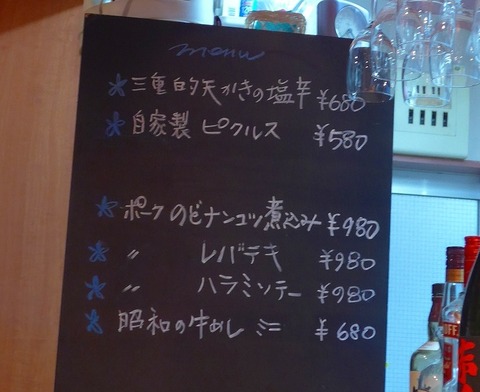 menu
三重的矢かきの塩辛 ¥680
自家製 ピクルス ¥580
ポークのビナンコツ煮込み ¥980
〃 レバテキ ¥980
〃 ハラミソテー ¥980
昭和の牛めし ミニ ¥680